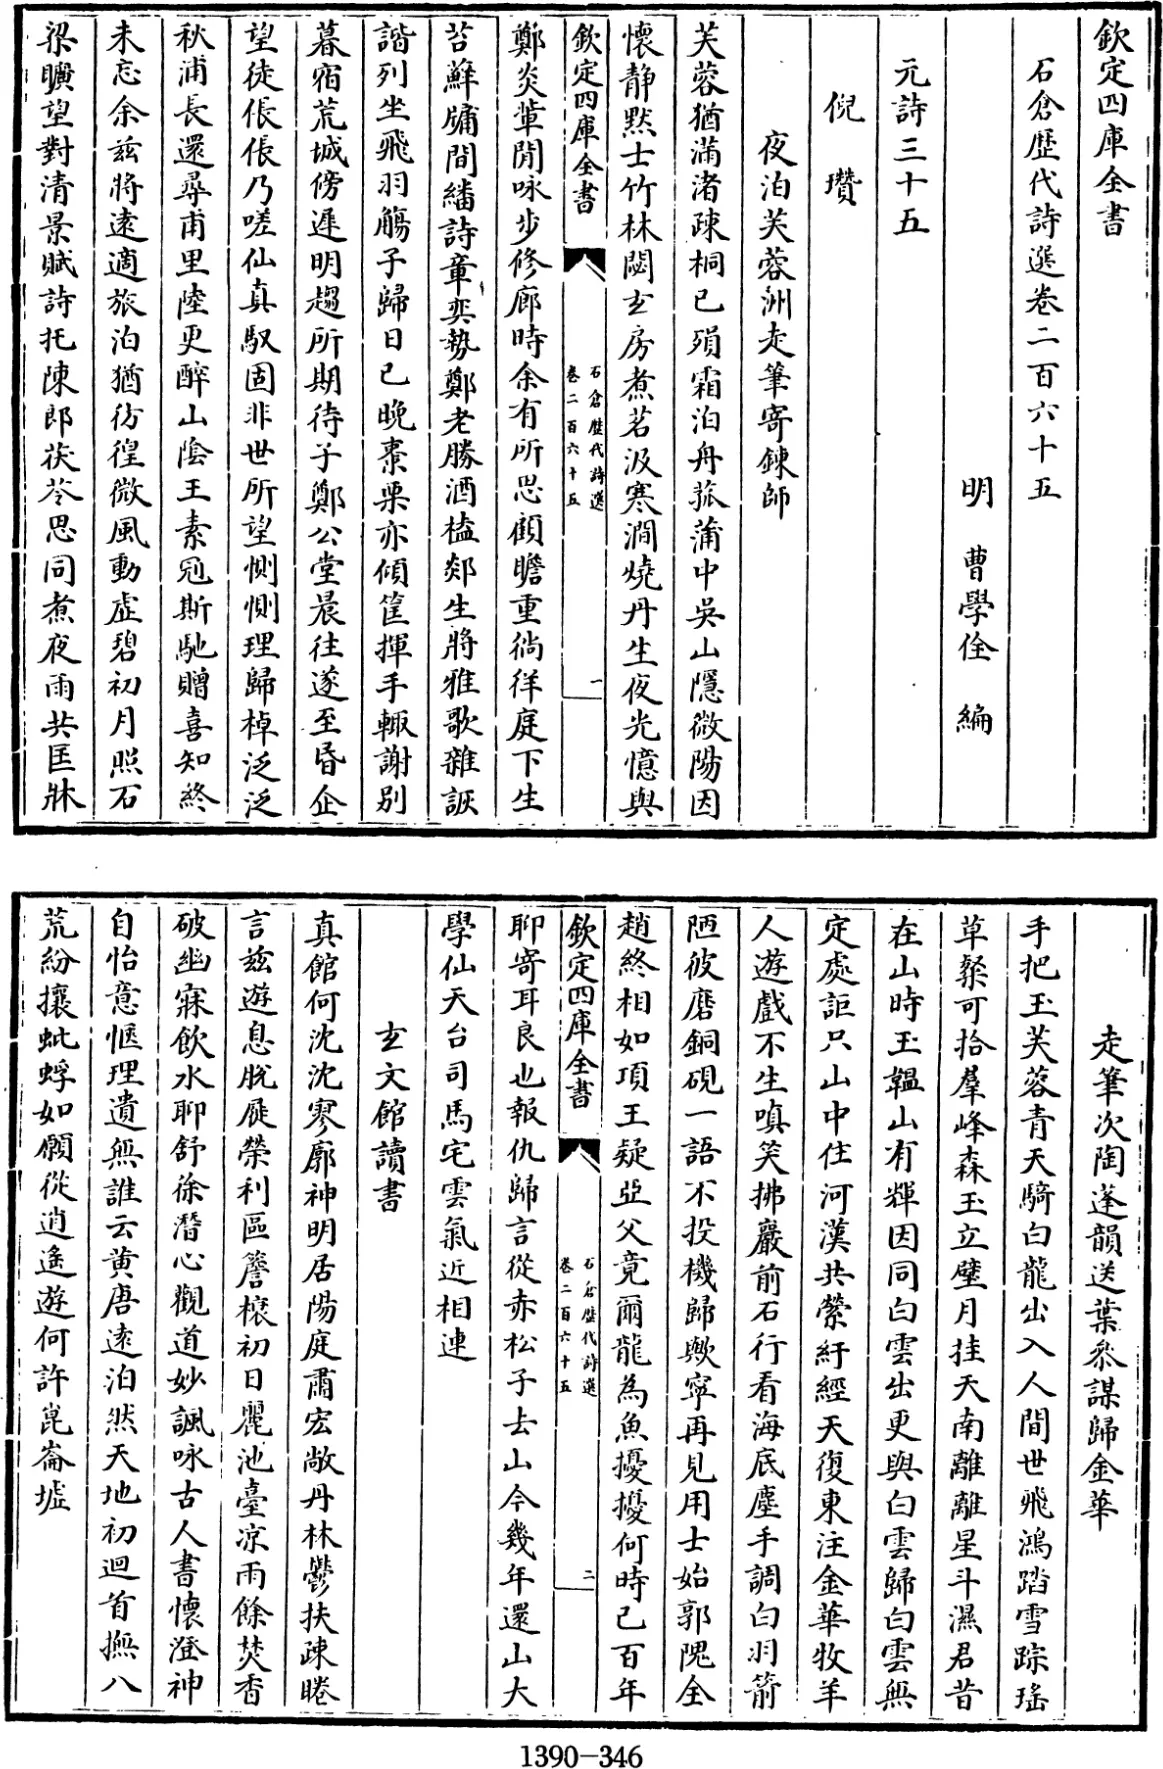 欽定四庫全書
石倉歷代詩選卷二百六十五
明　曹學佺　編
元詩三十五
倪　瓚
夜泊芙蓉洲走筆寄鍊師
芙蓉猶滿渚疎桐已殞霜泊舟菰蒲中吳山隱微陽因
懷靜默士竹林閟玄房煮茗汲寒澗燒丹生夜光憶與
欽定四庫全書
石倉歷代詩選
卷二百六十五
一
鄭炎輩閒咏步修廊時余有所思顧瞻重徜徉庭下生
苔蘚牖間繙詩章奕勢鄭老勝酒榼郯生將雅歌雜詼
諧列坐飛羽觴子歸日已晚棗栗亦傾筐揮手輙謝别
暮宿荒城傍遲明趨所期待子鄭公堂晨往遂至昏企
望徒倀倀乃嗟仙真馭固非世所望惻惻理歸棹泛泛
秋浦長還尋甫里陸更醉山陰王素兎斯馳贈喜知終
未忘余兹將遠適旅泊猶彷徨微風動虚碧初月照石
梁曠望對清景賦詩托陳郎茯苓思同煮夜雨共匡牀
走筆次陶蓬韻送葉叅謀歸金華
手把玉芙蓉青天騎白龍出入人間世飛鴻踏雪踪瑶
草粲可拾羣峰森玉立璧月挂天南離離星斗濕君昔
在山時玉韞山有輝因同白雲出更與白雲歸白雲無
定處詎只山中住河漢共縈紆經天復東注金華牧羊
人遊戲不生嗔笑拂巖前石行看海底塵手調白羽箭
陋彼磨銅硯一語不投機歸歟寧再見用士始郭隗全
趙終相如項王疑亞父竟爾龍為魚擾擾何時已百年
欽定四庫全書
石倉歷代詩選
卷二百六十五
二
聊寄耳良也報仇歸言從赤松子去山今幾年還山大
學仙天台司馬宅雲氣近相連
玄文館讀書
真館何沈沈寥廓神明居陽庭肅宏敞丹林鬱扶疎睠
言兹遊息脱屣榮利區簷榱初日麗池臺凉雨餘焚香
破幽寐飲水聊舒徐潛心觀道妙諷咏古人書懷澄神
自怡意愜理遺無誰云黄唐遠泊然天地初迴首撫八
荒紛攘蚍蜉如願從逍遥遊何許崑崙墟
1390-346